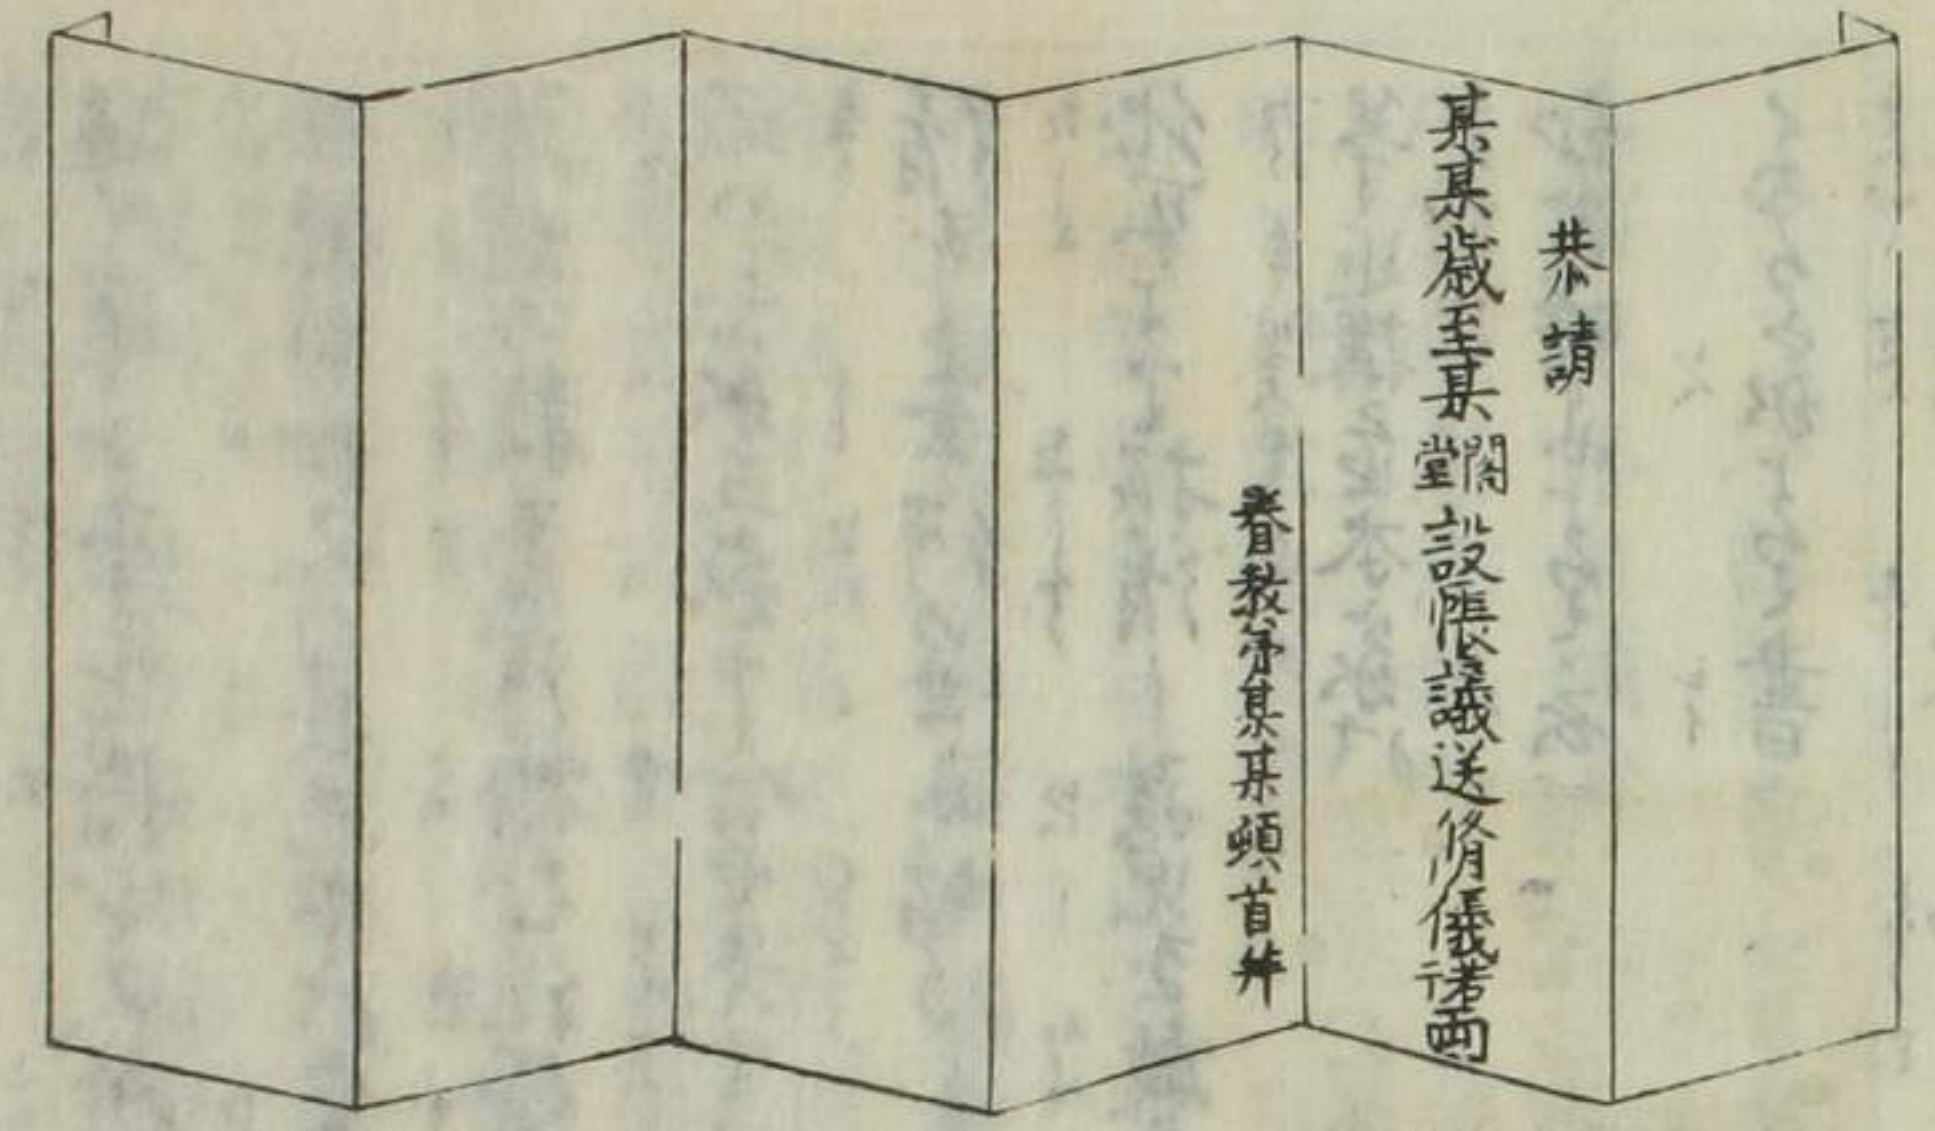 恭請
某某歲至某閣堂設帳議送脩儀若干兩
眷教弟某某頓首拜